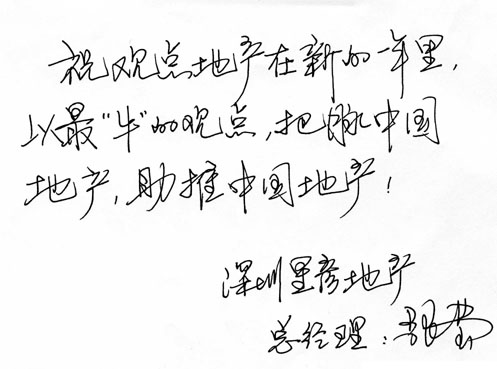 祝观点地产在新的一年里,
以最“牛”的观点,把脉中国
地产,助推中国地产!
深圳星彦地产
总经理: